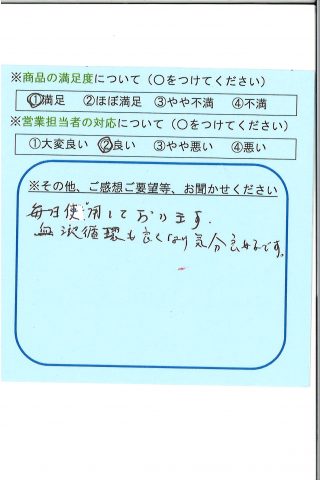 ※商品の満足度について（○をつけてください）
①満足 ②ほぼ満足 ③やや不満 ④不満
※営業担当者の対応について（○をつけてください）
①大変良い ②良い ③やや悪い ④悪い
※その他、ご感想ご要望等、お聞かせください
毎日使用しております。
血液循環も良くなり気分良好です。